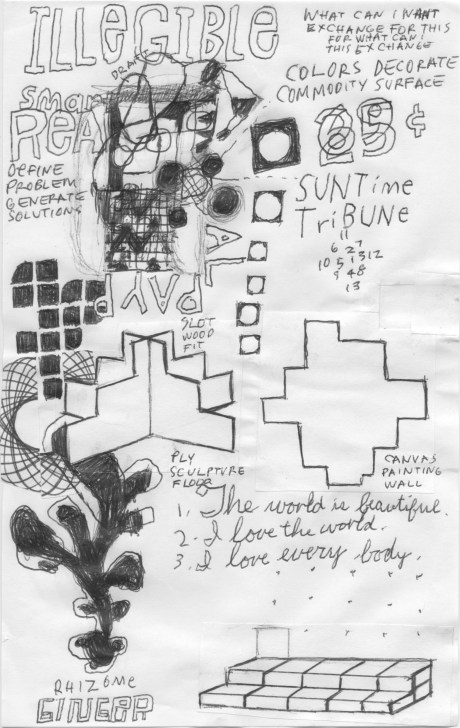 ILLEGIBLE
WHAT CAN I WANT
EXCHANGE FOR THIS
FOR WHAT CAN I
THIS EXCHANGE
DRAFT
COLORS DECORATE
COMMODITY SURFACE
Smar
REA
25¢
DEFINE
PROBLEM
GENERATE
SOLUTIONS
SUNTime
TriBUNe
11
6 27
10 5 1 3 12
9 48
13
SLOT
WOOD
FIT
PLY
SCULPTURE
FLOOR
CANVAS
PAINTING
WALL
1. The world is beautiful.
2. I love the world.
3. I love every body.
RHIZOME
GINGER